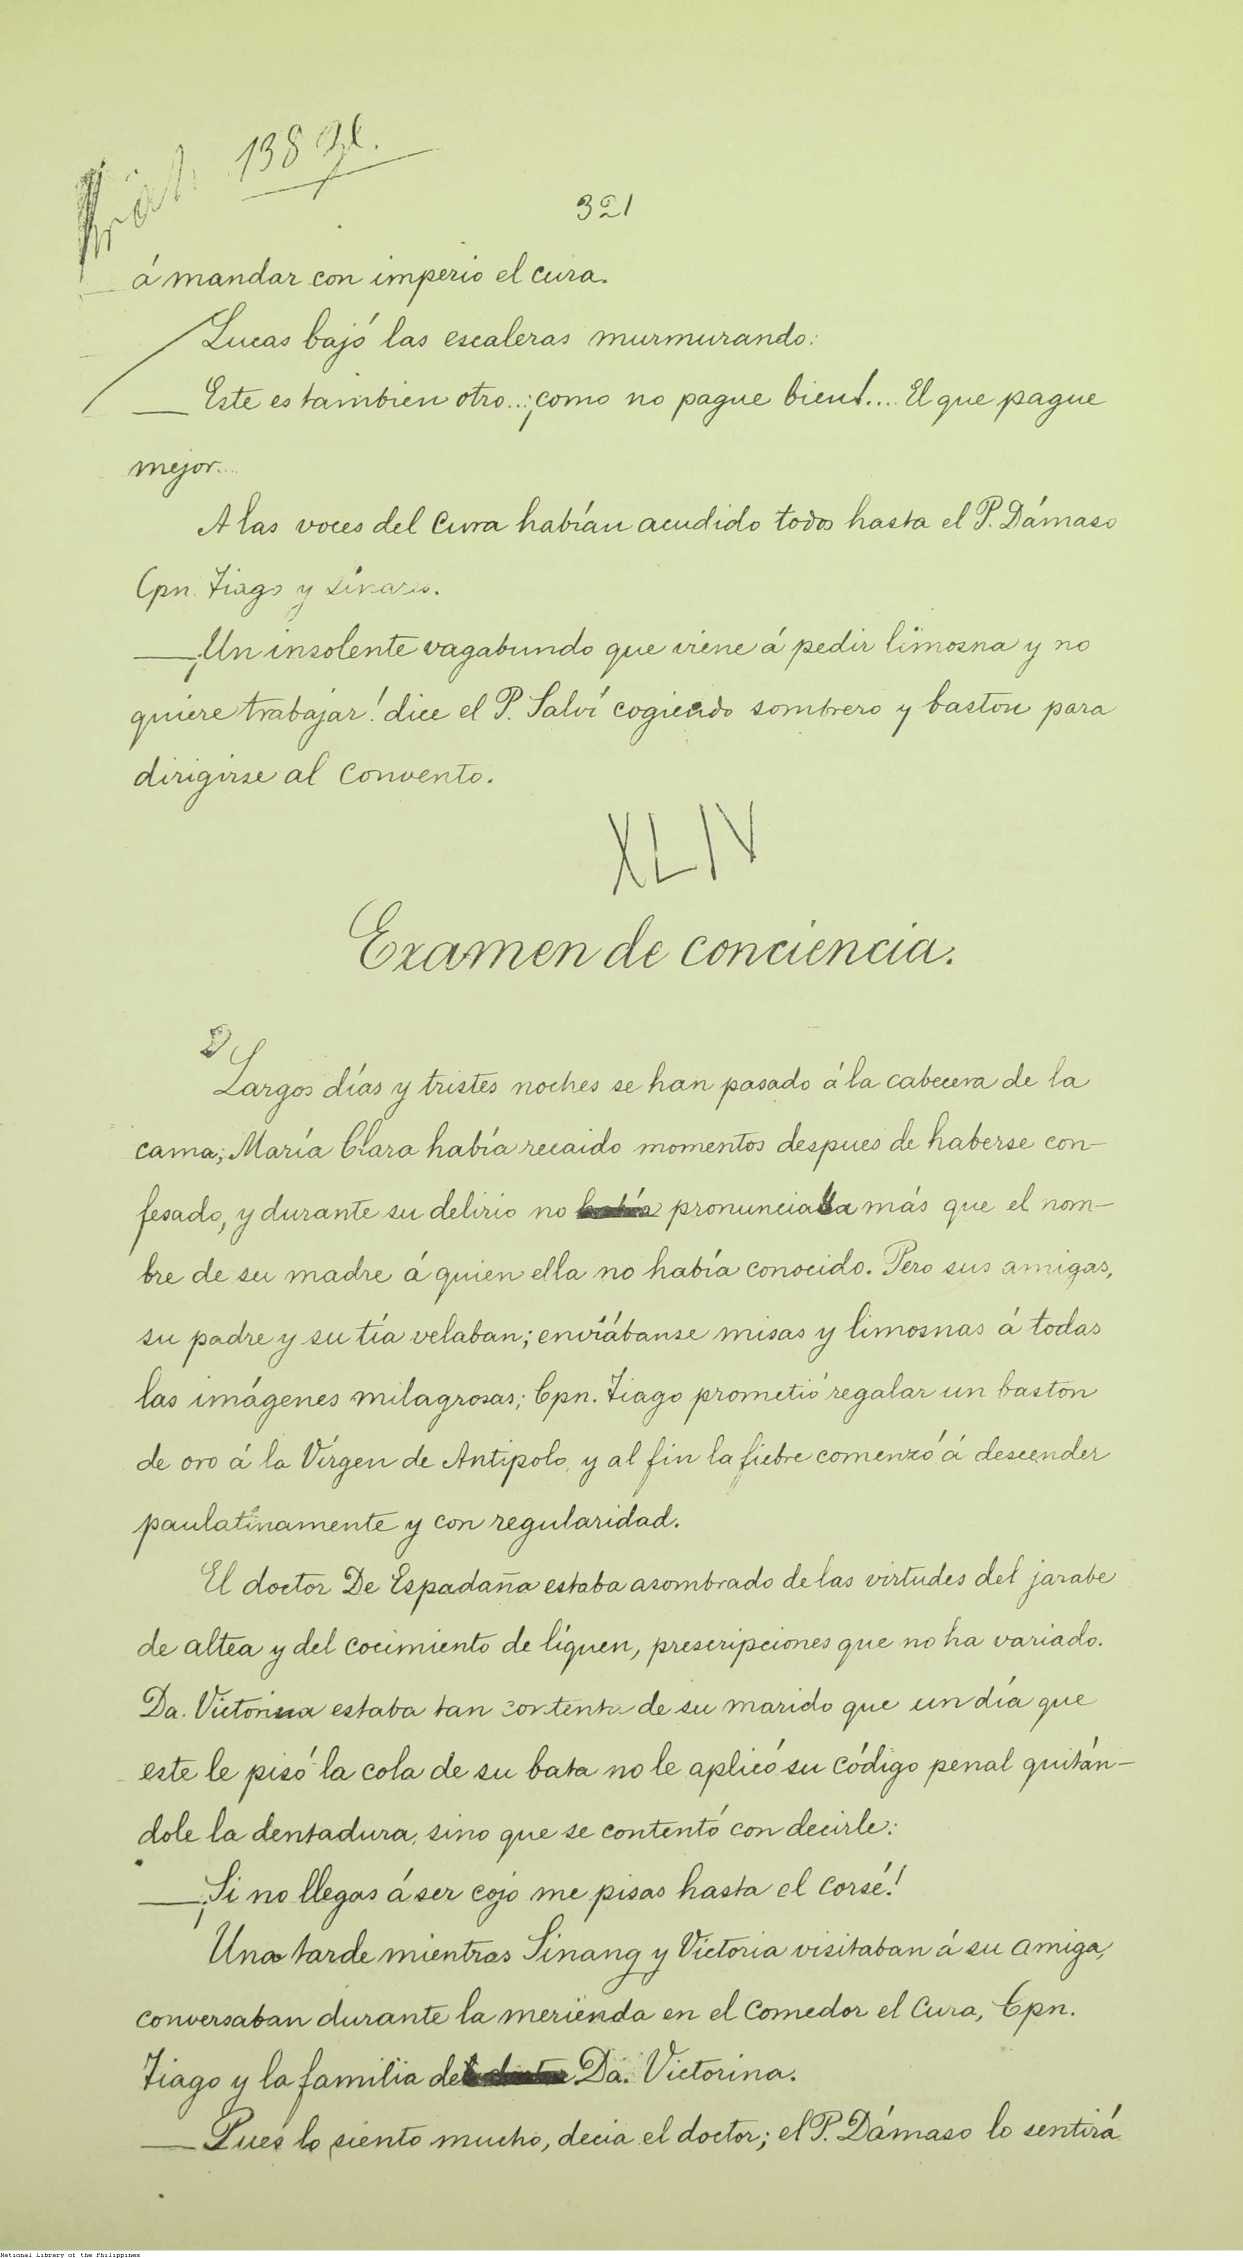 138
321
á mandar con imperio el cura.
Lucas bajó las escaleras murmurando:
— Este es tambien otro...¡como no pague bien!... El que pague
mejor....
A las voces del cura habían acudido todos hasta el P. Dámaso
Cpn. Tiago y Linares.
— ¡Un insolente vagabundo que viene á pedir limosna y no
quiere trabajar! dice el P. Salví cogiendo sombrero y baston para
dirigirse al convento.
XLIV
Examen de conciencia.
Largos días y tristes noches se han pasado á la cabecera de la
cama; María Clara había recaido momentos despues de haberse con-
fesado, y durante su delirio no había pronunciaba más que el nom-
bre de su madre á quien ella no había conocido. Pero sus amigas,
su padre y su tía velaban; enviábanse misas y limosnas á todas
las imágenes milagrosas; Cpn. Tiago prometió regalar un baston
de oro á la Vírgen de Antipolo, y al fin la fiebre comenzó á descender
paulatinamente y con regularidad.
El doctor De Espadaña estaba asombrado de las virtudes del jarabe
de altea y del cocimiento de líquen, prescripciones que no ha variado.
Da. Victorina estaba tan contenta de su marido que un día que
este le pisó la cola de su bata no le aplicó su código penal quitán-
dole la dentadura, sino que se contentó con decirle:
— ¡Si no llegas á ser cojo me pisas hasta el corsé!
Una tarde mientras Sinang y Victoria visitaban á su amiga,
conversaban durante la merienda en el comedor el Cura, Cpn.
Tiago y la familia del doctor Da. Victorina.
— Pues lo siento mucho, decia el doctor; el P. Dámaso lo sentirá
National Library of the Philippines